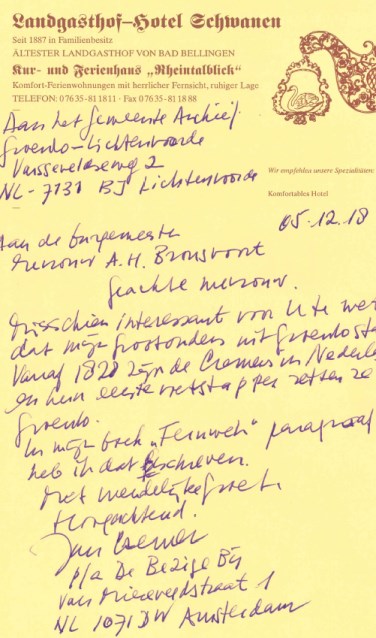 Landgasthof-Hotel Schwanen
Seit 1887 in Familienbesitz
ÄLTESTER LANDGASTHOF VON BAD BELLINGEN
Kur- und Ferienhaus „Rheintalblick"
Komfort-Ferienwohnungen mit herrlicher Fernsicht, ruhiger Lage
TELEFON: 0 76 35 - 81 18 11 · Fax 0 76 35 - 81 18 88
Wir empfehlen unsere Spezialitäten:
Komfortables Hotel
Aan het Gemeente Archief
Groenlo-Lichtenvoorde
Varsseveldseweg 2
NL - 7131 BJ Lichtenvoorde
05-12.18
Aan de burgemeester
Mevrouw A.H. Bronsvoort
Geachte mevrouw.
Misschien interessant voor U te wet
dat mijn grootouders uit Groenlo sta
Vanaf 1828 zijn de Cremers in Nederla
en hun eerste voetstappen zetten ze
Groenlo.
In mijn boek „Fernweh" paragraaf
heb ik dat beschreven.
Met vriendelijke groet.
Hoogachtend.
Jan Cremer
p/a De Bezige Bij
Van Miereveldstraat 1
NL 1071 DW Amsterdam